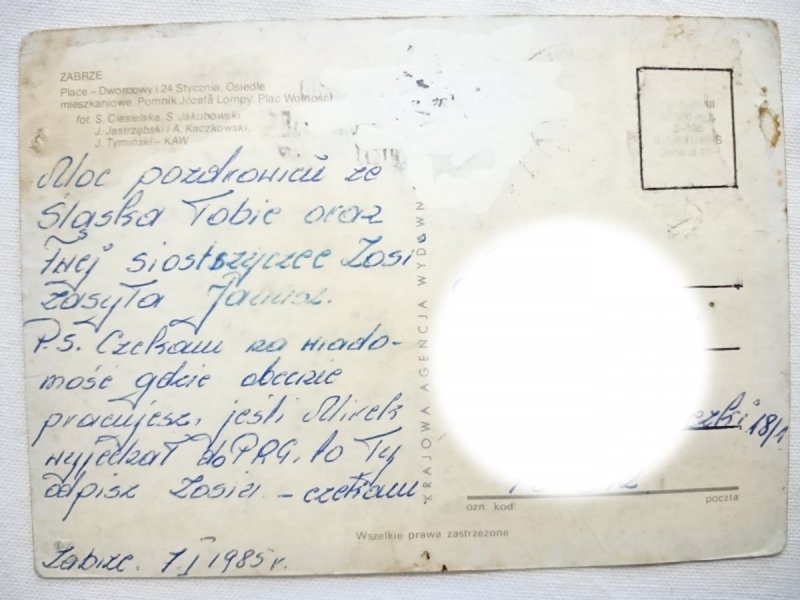 ZABRZE
Place – Dworcowy i 24 Stycznia. Osiedle
mieszkaniowe. Pomnik Józefa Lompy. Plac Wolności
fot. S. Ciesielska, S. Jakubowski,
J. Jastrzębski i A. Kaczkowski,
J. Tymiński – KAW
Moc pozdrowień ze
Śląska Tobie oraz
Twej siostrzyczce Zosi
zasyła Janusz.
P.S. Czekam na wiado-
mość gdzie obecnie
pracujesz, jeśli Mirek
wyjechał do PRG, to Ty
odpisz Zosiu. – czekam
Zabrze. 7 I 1985 r.
KRAJOWA AGENCJA WYDAWN
18/1
ozn. kod: poczta
Wszelkie prawa zastrzeżone